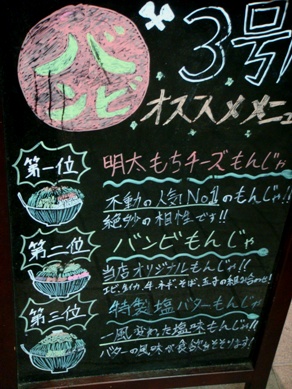 バンビ
3号
オススメメニュ
第一位
明太もちチーズもんじゃ
不動の人気!No1のもんじゃ!!
絶妙の相性です!!
第二位
バンビもんじゃ
当店オリジナルもんじゃ!!
エビ、イカ、牛、ネギ、そば、玉子の組み合わせ!
第三位
特製塩バターもんじゃ
一風変わった塩味もんじゃ!!
バターの風味が食欲をそそります!